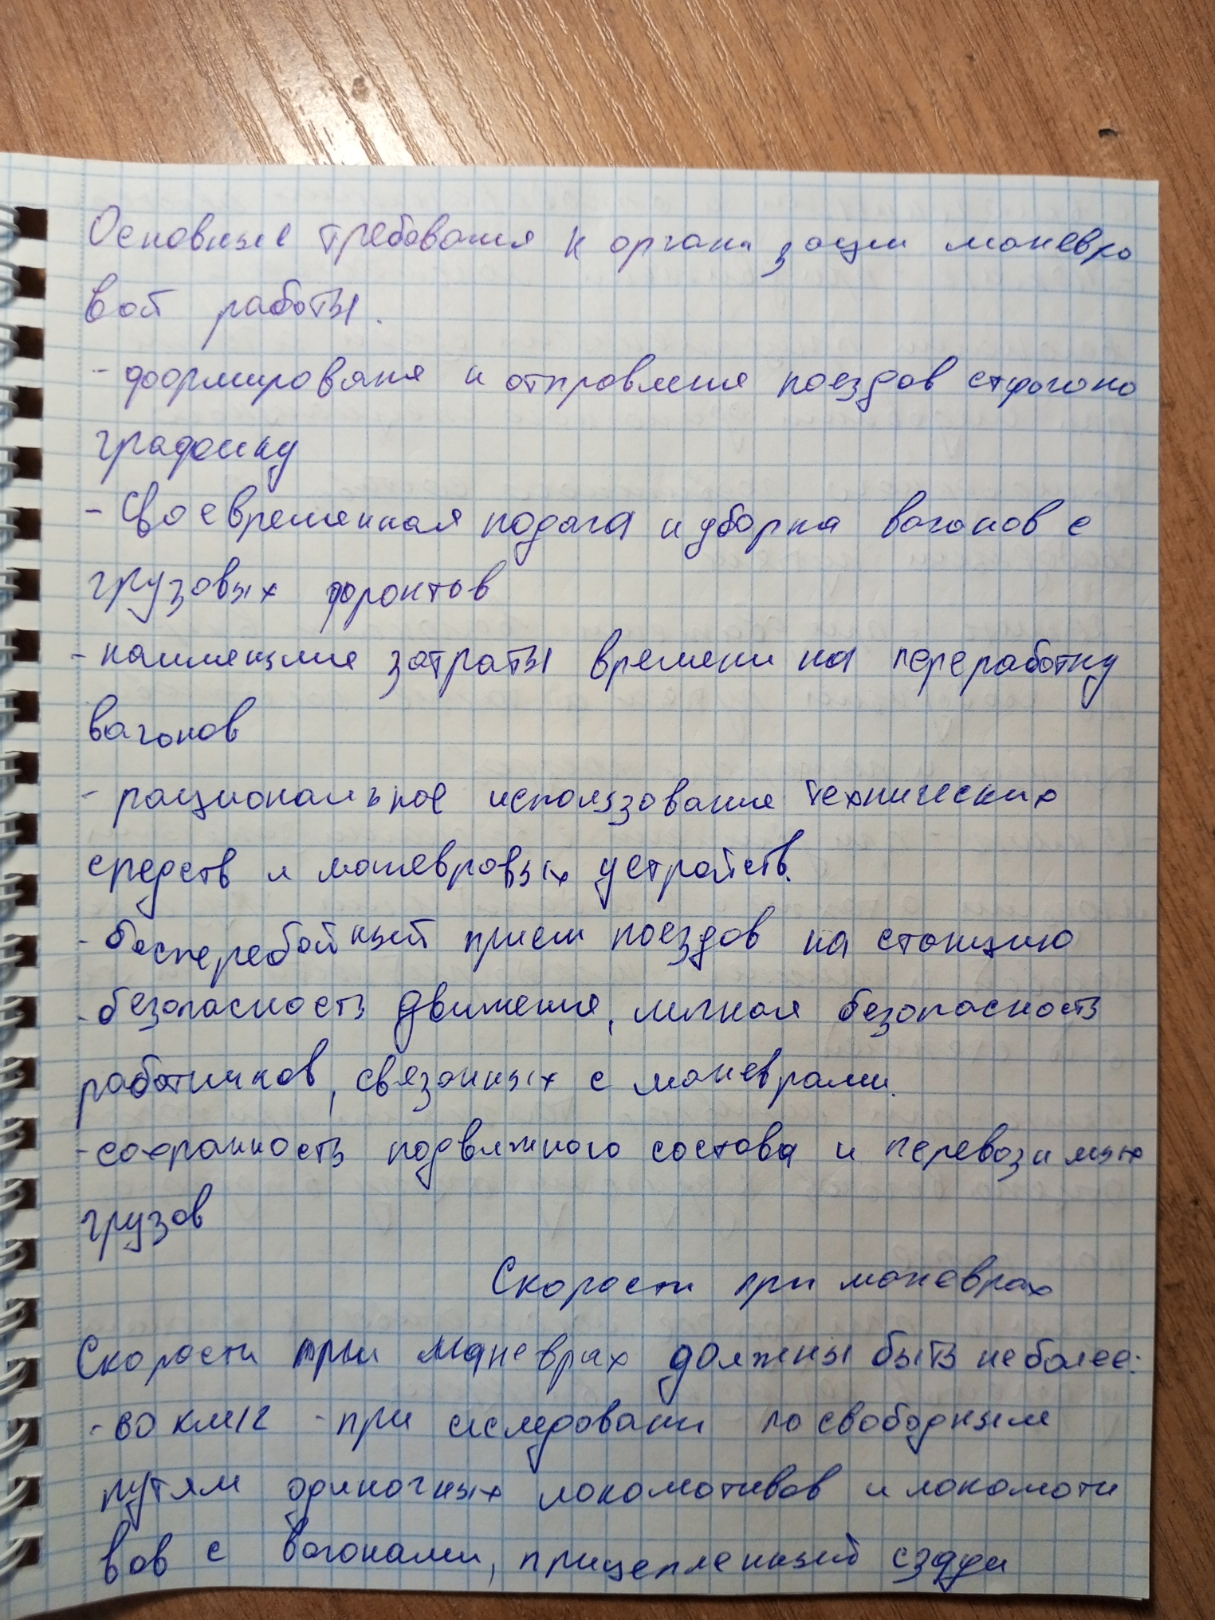 Основные требования к организации маневро
вой работы.
- формирования и отправления поездов строго по
графику
- Своевременная подача и уборка вагонов с
грузовых фронтов
- наименшие затраты времени на переработку
вагонов
- рациональное использование технических
средств и маневровых устройств.
- бесперебойный прием поездов на станцию
- безопасность движения, личная безопасность
работников, связанных с маневрами.
- сохранность подвижного состава и перевозимых
грузов
Скорости при маневрах
Скорости при маневрах должны быть не более:
- 60 км/г - при следовани по свободным
путям одиночных локомотивов и локомоти
вов с вагонами, прицепленный сзади